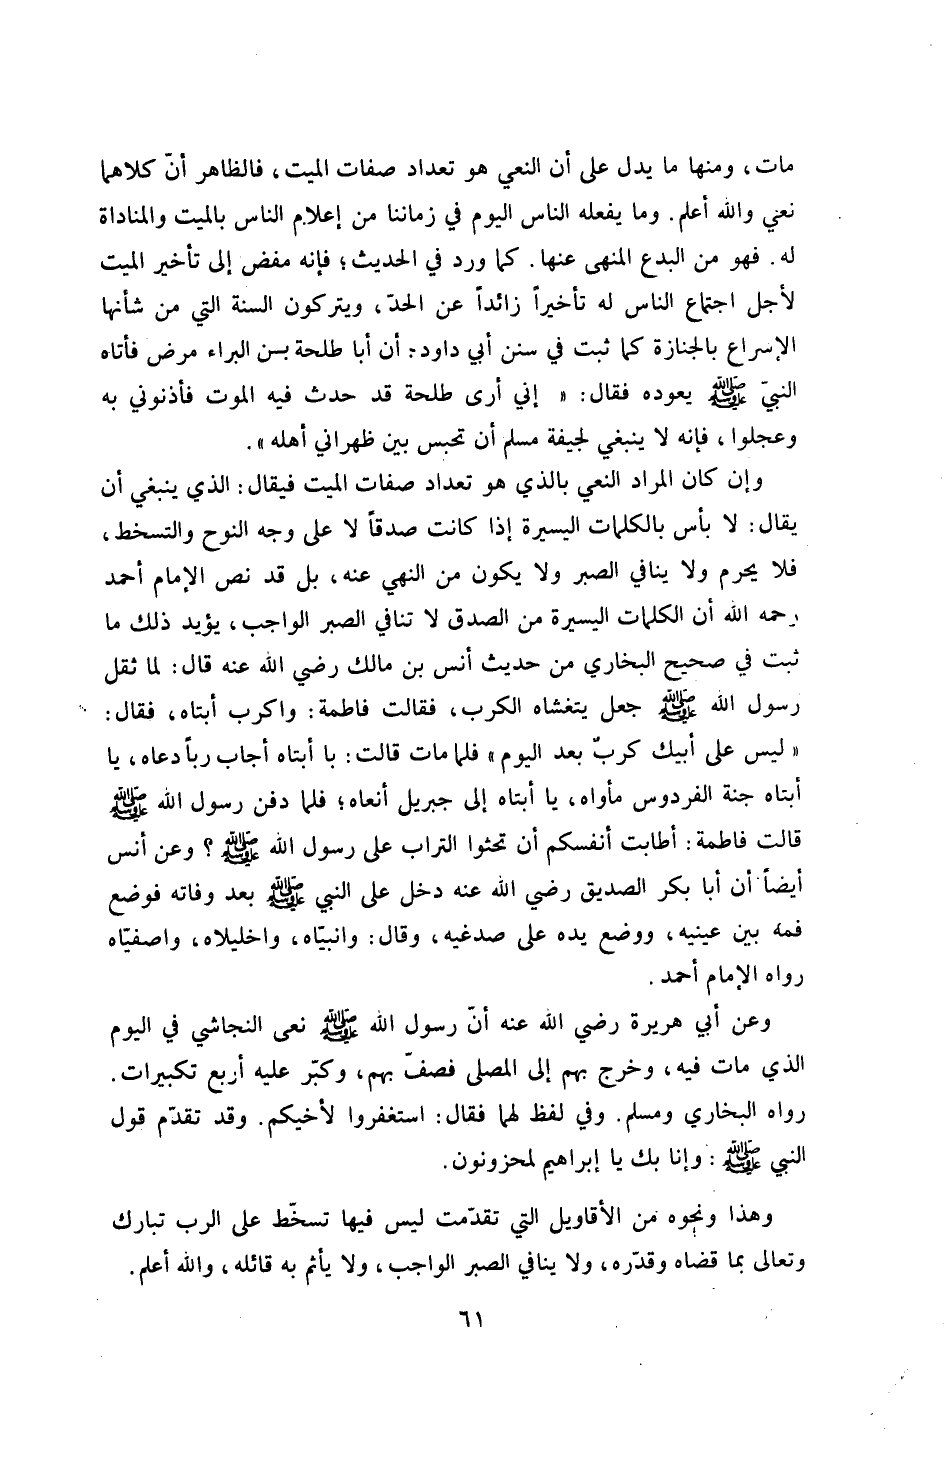 مات، ومنها ما يدل على أن النعي هو تعداد صفات الميت، فالظاهر أنّ كلاهما
نعي والله أعلم. وما يفعله الناس اليوم في زماننا من إعلام الناس بالميت والمناداة
له. فهو من البدع المنهى عنها. كما ورد في الحديث؛ فإنه مفض إلى تأخير الميت
لأجل اجتماع الناس له تأخيراً زائداً عن الحدّ، ويتركون السنة التي من شأنها
الإسراع بالجنازة كما ثبت في سنن أبي داود: أن أبا طلحة بسن البراء مرض فأتاه
النبيّ ﷺ يعوده فقال: « إني أرى طلحة قد حدث فيه الموت فأذنوني به
وعجلوا، فإنه لا ينبغي لجيفة مسلم أن تحبس بين ظهراني أهله ».
وإن كان المراد النعي بالذي هو تعداد صفات الميت فيقال: الذي ينبغي أن
يقال: لا بأس بالكلمات اليسيرة إذا كانت صدقاً لا على وجه النوح والتسخط،
فلا يحرم ولا ينافي الصبر ولا يكون من النهي عنه، بل قد نص الإمام أحمد
رحمه الله أن الكلمات اليسيرة من الصدق لا تنافي الصبر الواجب، يؤيد ذلك ما
ثبت في صحيح البخاري من حديث أنس بن مالك رضي الله عنه قال: لما ثقل
رسول الله ﷺ جعل يتغشاه الكرب، فقالت فاطمة: واكرب أبتاه، فقال:
« ليس على أبيك كربّ بعد اليوم » فلما مات قالت: با أبتاه أجاب رباً دعاه، يا
أبتاه جنة الفردوس مأواه، يا أبتاه إلى جبريل أنعاه؛ فلما دفن رسول الله ﷺ
قالت فاطمة: أطابت أنفسكم أن تحثوا التراب على رسول الله ﷺ؟ وعن أنس
أيضاً أن أبا بكر الصديق رضي الله عنه دخل على النبي ﷺ بعد وفاته فوضع
فمه بين عينيه، ووضع يده على صدغيه، وقال: وانبيّاه، واخليلاه، واصفيّاه
رواه الإمام أحمد.
وعن أبي هريرة رضي الله عنه أنّ رسول الله ﷺ نعى النجاشي في اليوم
الذي مات فيه، وخرج بهم إلى المصلى فصفّ بهم، وكبّر عليه أربع تكبيرات.
رواه البخاري ومسلم. وفي لفظ لهما فقال: استغفروا لأخيكم. وقد تقدّم قول
النبي ﷺ: وإنا بك يا إبراهيم لمحزونون.
وهذا ونحوه من الأقاويل التي تقدّمت ليس فيها تسخّط على الرب تبارك
وتعالى بما قضاه وقدّره، ولا ينافي الصبر الواجب، ولا يأثم به قائله، والله أعلم.
٦١